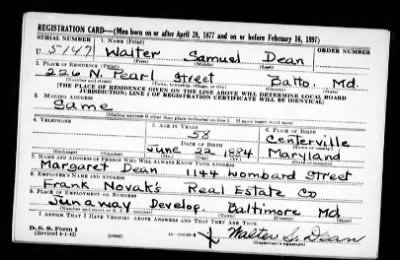 REGISTRATION CARD—(Men born on or after April 28, 1877 and on or before February 16, 1897)
SERIAL NUMBER 1. NAME (Print) ORDER NUMBER
U 5147 Walter Samuel Dean
2. PLACE OF RESIDENCE (Print)
226 N. Pearl Street Balto. Md.
(Number and street) (Town, township, village, or city) (County) (State)
[THE PLACE OF RESIDENCE GIVEN ON THE LINE ABOVE WILL DETERMINE LOCAL BOARD
JURISDICTION; LINE 2 OF REGISTRATION CERTIFICATE WILL BE IDENTICAL]
3. MAILING ADDRESS
Same
[Mailing address if other than place indicated on line 2. If same insert word same]
4. TELEPHONE 5. AGE IN YEARS 6. PLACE OF BIRTH
58 Centerville
DATE OF BIRTH
June 22 1884 Maryland
(Mo.) (Day) (Yr.)
7. NAME AND ADDRESS OF PERSON WHO WILL ALWAYS KNOW YOUR ADDRESS
Margaret Dean 1144 Wombard Street
8. EMPLOYER'S NAME AND ADDRESS
Frank Novak's Real Estate Co
9. PLACE OF EMPLOYMENT OR BUSINESS
Develop. Baltimore Md
I AFFIRM THAT I HAVE VERIFIED ABOVE ANSWERS AND THAT THEY ARE TRUE.
D. S. S. Form 1
(Revised 4-1-42)
Walter S. Dean
(Registrant's signature)